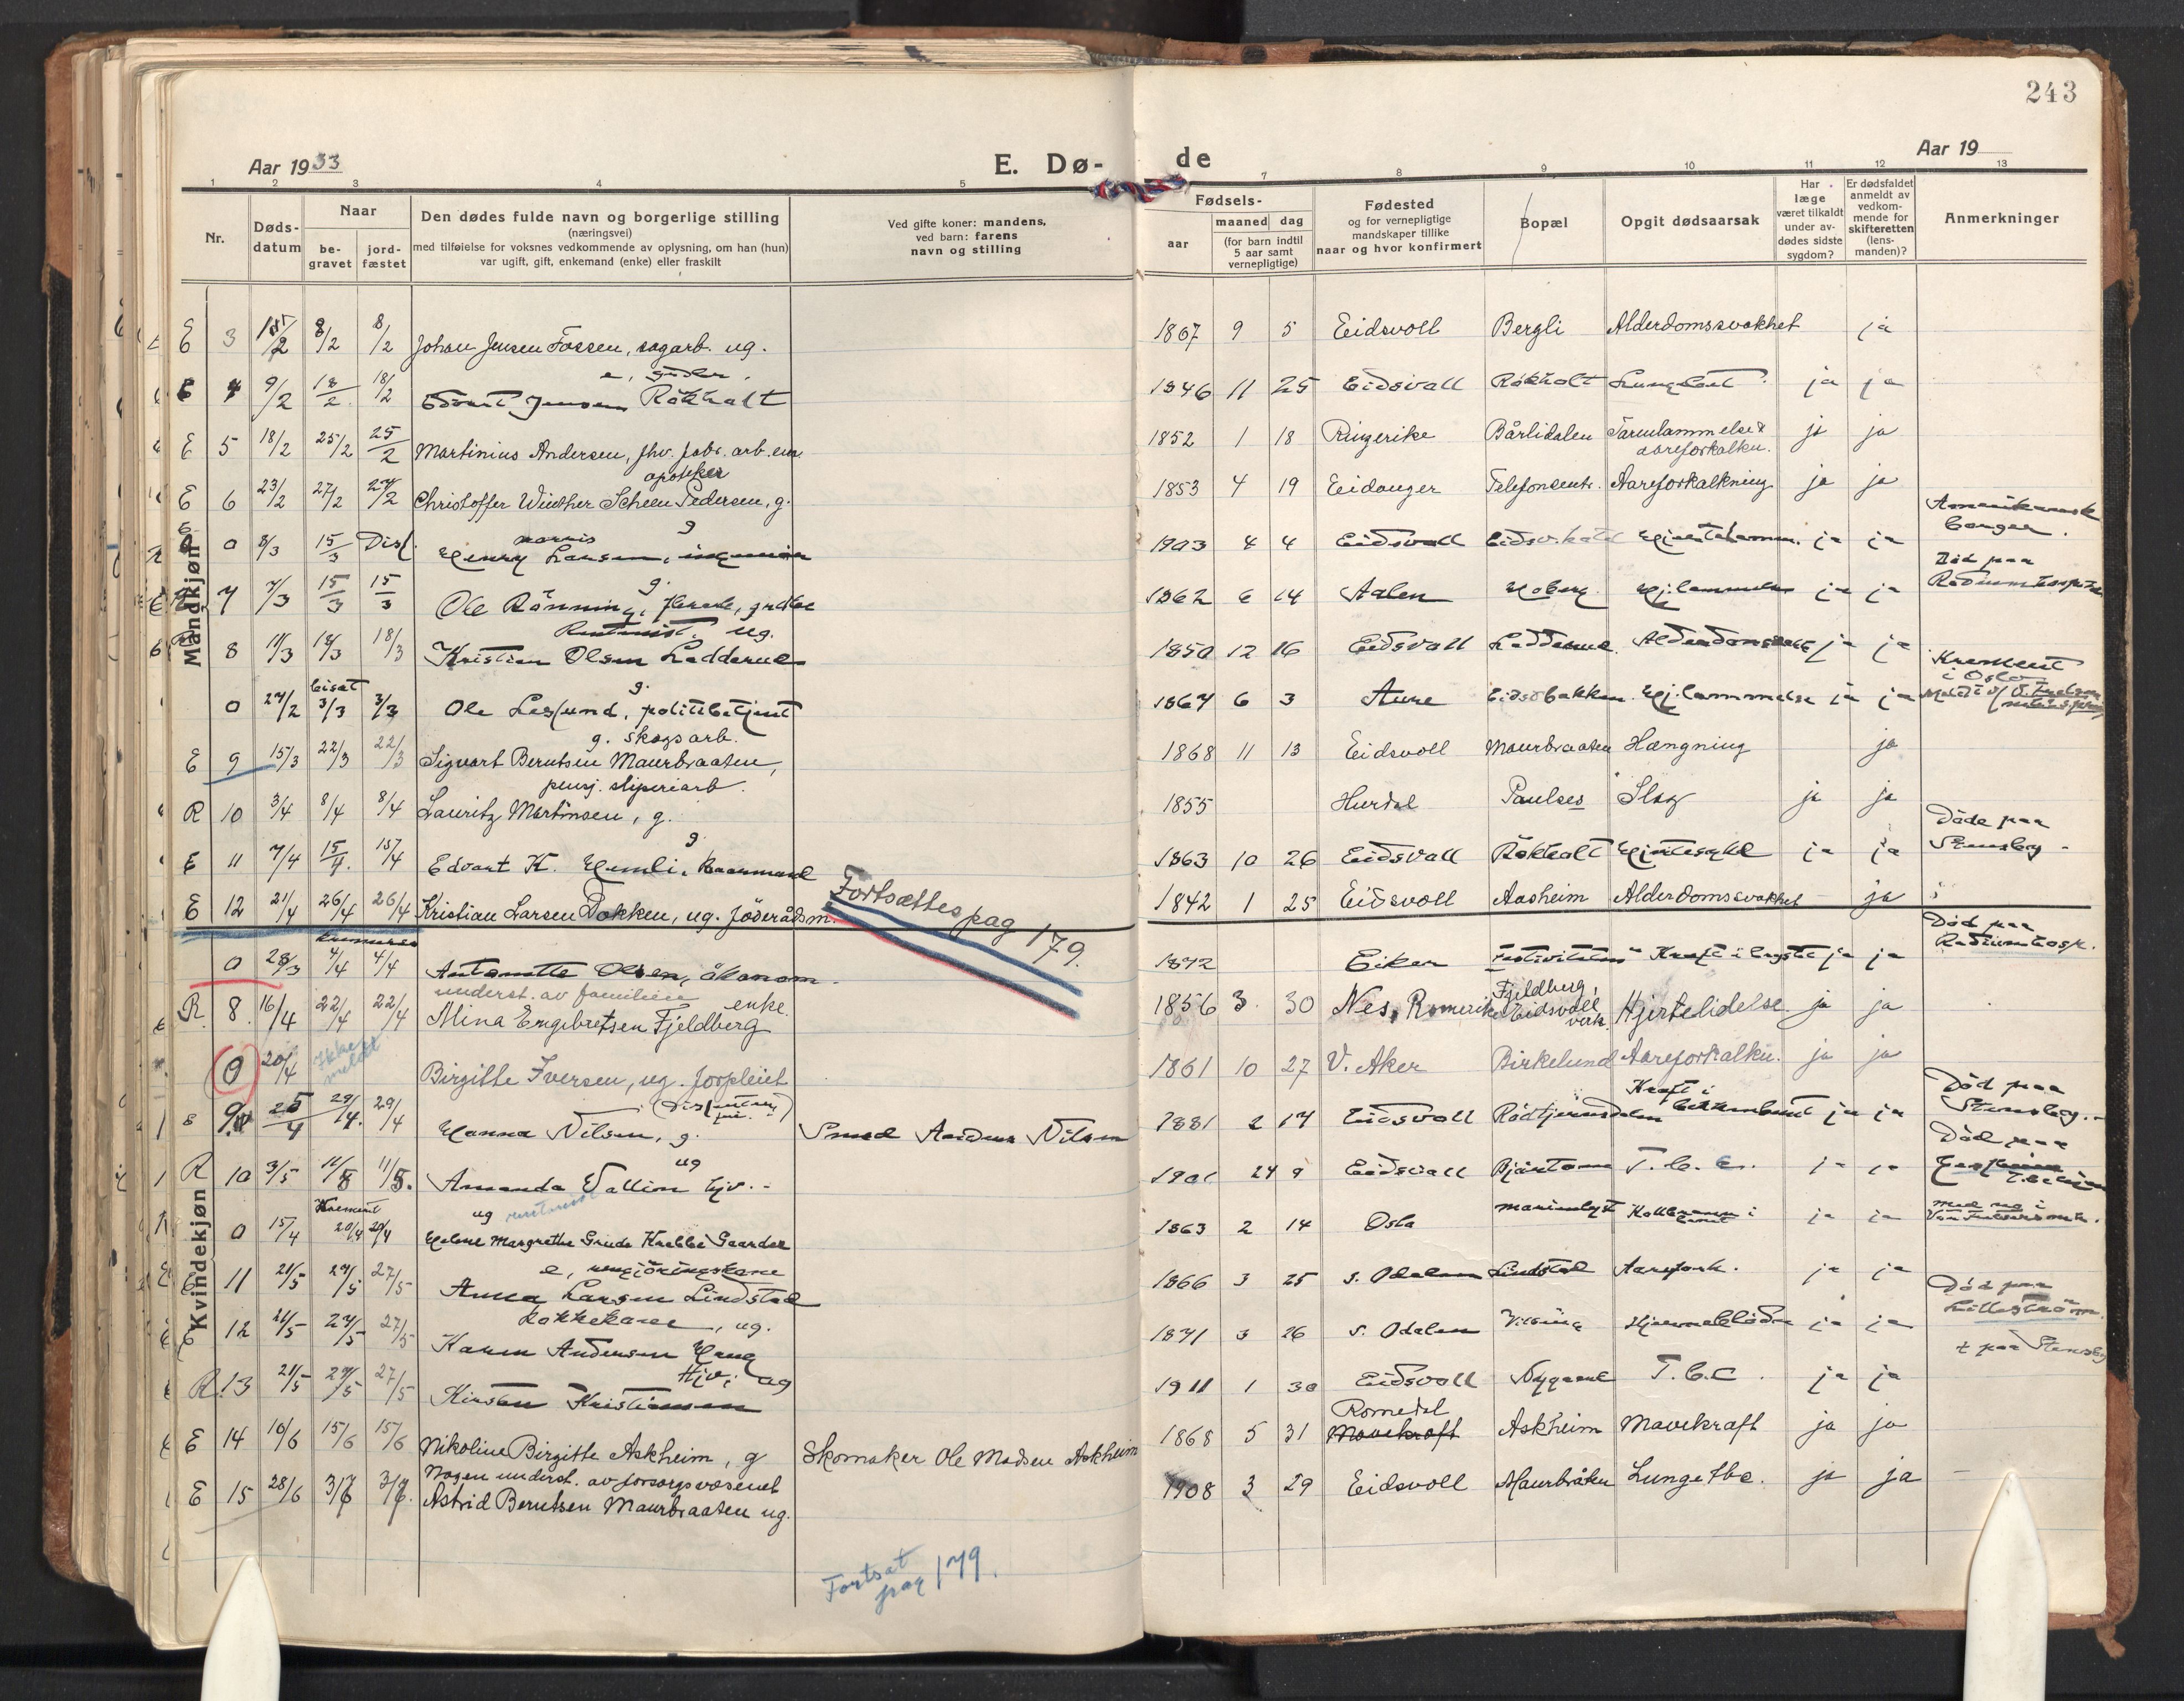 243
Aar 1933
E. Dø-
de
Aar 19
1 2 3 4 5 7 8 9 10 11 12 13
Nr.
Døds-
datum
Naar
be-
gravet
jord-
fæstet
Den dødes fulde navn og borgerlige stilling
(næringsvei)
med tilføielse for voksnes vedkommende av oplysning, om han (hun)
var ugift, gift, enkemand (enke) eller fraskilt
Ved gifte koner: mandens,
ved barn: farens
navn og stilling
Fødsels-
aar
maaned dag
(for barn indtil
5 aar samt
vernepligtige)
Fødested
og for vernepligtige
mandskaper tillike
naar og hvor konfirmert
Bopæl
Opgit dødsaarsak
Har
læge
været tilkaldt
under av-
dødes sidste
sygdom?
Er dødsfaldet
anmeldt av
vedkom-
mende for
skifteretten
(lens-
manden)?
Anmerkninger
Mandkjøn
E 3 8/2 8/2 Johan Jensen Fossen, sagarb. ug. 1867 9 5 Eidsvoll Bergli Alderdomssvakhet ja
E 4 9/2 18/2 18/2 Edvart Jensen Rökholt 1846 11 25 Eidsvall Rökholt ja ja
E 5 18/2 25/2 25/2 Martinius Andersen, fhv. fabr. arb. em. 1852 1 18 Ringerike Bårlidalen Tarmlammelse &
aareforkalkn. ja ja
apotheker
E 6 23/2 27/2 27/2 Christoffer Winther Scheen Pedersen, g. 1853 4 19 Eidanger Telefonsentr. Aareforkalkning ja ja
Amerikansk
borger.
0 8/3 15/3 Disf. Henry Larsen, ingeniör 1903 4 4 Eidsvoll ja ja
g.
Död paa
Radiumhospital
7 7/3 15/3 15/3 Ole Rönning, grdbr 1862 6 14 Aalen Hoberg Hj.lammelse ja ja
Rentenist. ug.
R 8 11/3 18/3 18/3 Kristian Olsen Ladderud 1850 12 16 Eidsvall Ladderud Alderdomssvakh ja ja
Kremeret
i Oslo
bisat
g.
0 27/2 3/3 3/3 Ole Leslund, politibetjent 1867 6 3 Aure Eidsvbakken Hj.lammelse ja ja
g. skogsarb.
E 9 15/3 22/3 22/3 Sigvart Berntsen Maurbraaten, 1868 11 13 Eidsvoll Maurbraaten Hængning ja
pensj. sliperiarb.
R 10 3/4 8/4 8/4 Lauritz Martinsen, g. 1855 Hurdal Paulses Slag ja ja
g.
Döde paa
Stensby -
E 11 7/4 15/4. 15/4 Edvart K. Hemli, baanmand 1863 10 26 Eidsvall Rökholt Hjertesykd ja ja
E 12 21/4 26/4 26/4 Kristian Larsen Dokken, ug. föderådsm. 1842 1 25 Eidsvoll Aasheim Alderdomssvakhet ja
Fortsættes pag 179.
Kvindekjøn
Död paa
Radiumhosp.
0 28/3 4/4 4/4 Antonette Olsen, ökonom. 1872 Eiker Festiviteten Kræft i brystet ja ja
underst. av familien enke.
R 8. 16/4 22/4 22/4 Mina Engebretsen Fjeldberg 1856 3 30 Nes, Romerike Fjeldberg,
Eidsvoll
verk Hjertelidelse ja ja
0 20/4 Ikke
meldt Birgitte Iversen, ug. forpleiet 1861 10 27 V. Aker Birkelund Aareforkalkn. ja ja
E 9 25/4 29/4. 29/4 Hanna Nilsen, g. Smed Anders Nilsen 1881 2 17 Eidsvoll Rödtjernsdalen Kræft i
bekkenbund ja ja
Död paa
Stensby.-
ug
R 10 3/5 11/5. Amanda Vallin hjv.- 1901 24 9 Eidsvall T.b.c. ja ja
Död paa
ug rentenist
Krement
0 15/4 20/4 20/4 Helene Margrethe Grude Krebbe Gaarder 1863 2 14 Oslo Marienlyst ja ja
e, rengjöringskone
E 11 21/5 27/5 27/5 Anna Larsen Lindstad 1866 3 25 S. Odalen Lindstad Aarefork. ja ja
Död paa
Lilleström.
Kokkekone, ug.
E 12 21/5 27/5 27/5 Karen Andersen Haug 1871 3 26 S. Odalen Hjerneblödn ja ja
† paa Stensby
Hjv; ug
R 13 21/5 27/5 27/5 Kirsten Kristiansen 1911 1 30 Eidsvoll Nygaard T.b.C. ja ja
Romedal
E 14 10/6 15/6 15/6 Nikoline Birgitte Askheim, g Skomaker Ole Madsen Askheim 1868 5 31 Mavekraft Askheim Mavekraft ja ja
Nogen underst. av forsorgsvæsenet
E 15 28/6 Astrid Berntsen Maurbraaten ug. 1908 3 29 Eidsvoll Maurbråten Lungetbc. ja ja
Fortsat
pag 179.